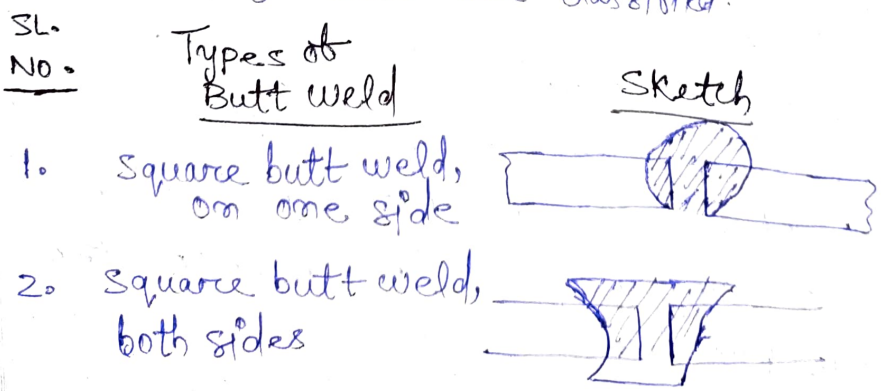 SL.
NO.
Types of
Butt weld
Sketch
1. Square butt weld,
on one side
2. Square butt weld,
both sides